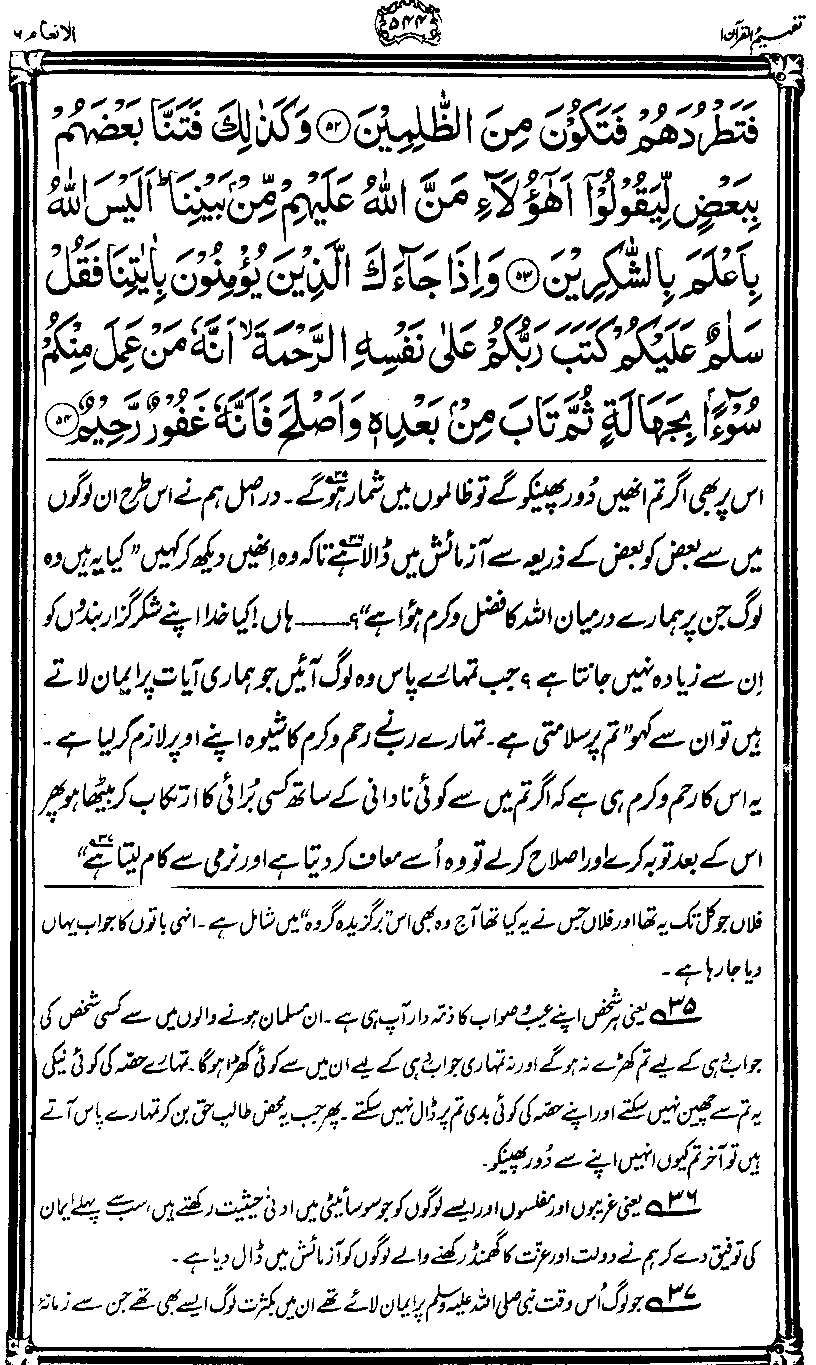 تفہیم القرآن ۱
۵۴۴
الانعام ۶
فَتَطْرُدَهُمْ فَتَكُوْنَ مِنَ الظّٰلِمِيْنَ ۝۵۲ وَكَذٰلِكَ فَتَنَّا بَعْضَهُمْ
بِبَعْضٍ لِّيَقُوْلُوْٓا اَهٰٓؤُلَآءِ مَنَّ اللّٰهُ عَلَيْهِمْ مِّنْۢ بَيْنِنَا ؕ اَلَيْسَ اللّٰهُ
بِاَعْلَمَ بِالشّٰكِرِيْنَ ۝۵۳ وَاِذَا جَآءَكَ الَّذِيْنَ يُؤْمِنُوْنَ بِاٰيٰتِنَا فَقُلْ
سَلٰمٌ عَلَيْكُمْ كَتَبَ رَبُّكُمْ عَلٰى نَفْسِهِ الرَّحْمَةَ ۙ اَنَّهٗ مَنْ عَمِلَ مِنْكُمْ
سُوْٓءًۢا بِجَهَالَةٍ ثُمَّ تَابَ مِنْۢ بَعْدِهٖ وَاَصْلَحَ فَاَنَّهٗ غَفُوْرٌ رَّحِيْمٌ ۝۵۴
اس پر بھی اگر تم انھیں دُور پھینکو گے تو ظالموں میں شمار ہو گے۳۵۔ دراصل ہم نے اس طرح ان لوگوں
میں سے بعض کو بعض کے ذریعہ سے آزمائش میں ڈالا ہے۳۶ تاکہ وہ اِنھیں دیکھ کر کہیں ”کیا یہ ہیں وہ
لوگ جن پر ہمارے درمیان اللہ کا فضل و کرم ہوُا ہے“؟ ــــــ ہاں! کیا خدا اپنے شکر گزار بندوں کو
اِن سے زیادہ نہیں جانتا ہے؟ جب تمہارے پاس وہ لوگ آئیں جو ہماری آیات پر ایمان لاتے
ہیں تو ان سے کہو ”تم پر سلامتی ہے۔ تمہارے ربّ نے رحم و کرم کا شیوہ اپنے اوپر لازم کر لیا ہے۔
یہ اس کا رحم و کرم ہی ہے کہ اگر تم میں سے کوئی نادانی کے ساتھ کسی بُرائی کا ارتکاب کر بیٹھا ہو پھر
اس کے بعد توبہ کرے اور اصلاح کر لے تو وہ اُسے معاف کر دیتا ہے اور نرمی سے کام لیتا ہے۳۷“
فلاں جو کل تک یہ تھا اور فلاں جس نے یہ کیا تھا آج وہ بھی اس ”برگزیدہ گروہ“ میں شامل ہے۔ انہی باتوں کا جواب یہاں
دیا جا رہا ہے۔
۳۵ یعنی ہر شخص اپنے عیب و صواب کا ذمّہ دار آپ ہی ہے۔ ان مسلمان ہونے والوں میں سے کسی شخص کی
جواب دہی کے لیے تم کھڑے نہ ہو گے اور نہ تمہاری جواب دہی کے لیے ان میں سے کوئی کھڑا ہوگا۔ تمہارے حصّہ کی کوئی نیکی
یہ تم سے چھین نہیں سکتے اور اپنے حصّہ کی کوئی بدی تم پر ڈال نہیں سکتے۔ پھر جب یہ محض طالبِ حق بن کر تمہارے پاس آتے
ہیں تو آخر تم کیوں انہیں اپنے سے دُور پھینکو۔
۳۶ یعنی غریبوں اور مفلسوں اور ایسے لوگوں کو جو سوسائیٹی میں ادنیٰ حیثیت رکھتے ہیں، سب سے پہلے ایمان
کی توفیق دے کر ہم نے دولت اور عزّت کا گھمنڈ رکھنے والے لوگوں کو آزمائش میں ڈال دیا ہے۔
۳۷ جو لوگ اُس وقت نبی صلی اللہ علیہ وسلم پر ایمان لائے تھے ان میں بکثرت لوگ ایسے بھی تھے جن سے زمانۂ